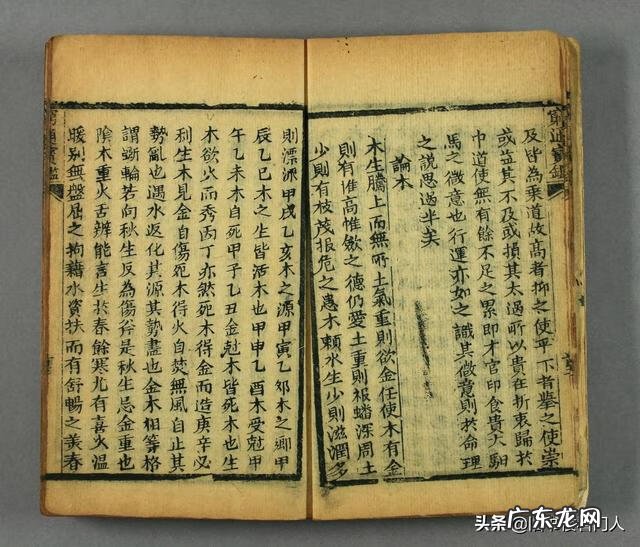 窮通寶鑑
及皆為乘道故高者抑之使平下者舉之使崇
或益其不及或損其太過所以貴在折衷歸於
中道使無有餘不足之累即才官印食貴人馹
馬之微意也行運亦如之識其微意則於命理
之說思過半矣
論木
木生騰上而無所止氣重則欲金任使木有金
則有惟高惟斂之德仍愛土重則根蟠深固土
少則有枝茂根危之患木賴水生少則滋潤多
則漂流甲戌乙亥木之源甲寅乙卯木之鄉甲
辰乙巳木之生皆活木也甲申乙酉木受尅甲
午乙未木自死甲子乙丑金尅木皆死木也生
木欲火而秀丙丁亦然死木得金而造庚辛必
利生木見金自傷死木得火自焚無風自止其
勢亂也遇水返化其源其勢盡也金木相等格
謂斲輪若向秋生反為傷斧是秋生忌金重也
陰木重火舌辨能言生於春餘寒尤有喜火溫
暖別無盤屈之拘藉水資扶而有舒暢之美春
窮通寶鑑
头条@
广东龙网